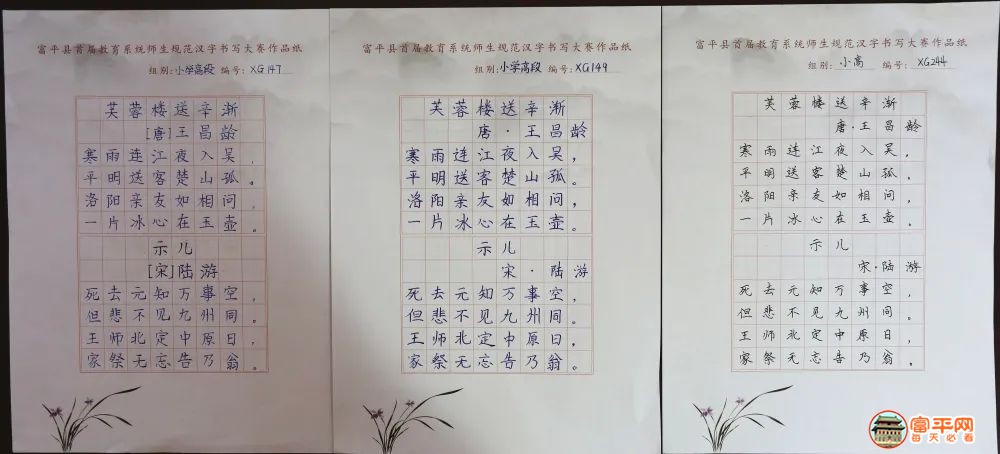 富平县首届教育系统师生规范汉字书写大赛作品纸
组别:小学高段 编号:XG147
芙蓉楼送辛渐
[唐]王昌龄
寒雨连江夜入吴,
平明送客楚山孤。
洛阳亲友如相问,
一片冰心在玉壶。
示儿
[宋]陆游
死去元知万事空,
但悲不见九州同。
王师北定中原日,
家祭无忘告乃翁。
富平县首届教育系统师生规范汉字书写大赛作品纸
组别:小学高段 编号:XG149
芙蓉楼送辛渐
唐·王昌龄
寒雨连江夜入吴,
平明送客楚山孤。
洛阳亲友如相问,
一片冰心在玉壶。
示儿
宋·陆游
死去元知万事空,
但悲不见九州同。
王师北定中原日,
家祭无忘告乃翁。
富平县首届教育系统师生规范汉字书写大赛作品纸
组别:小高 编号:XG244
芙蓉楼送辛渐
唐·王昌龄
寒雨连江夜入吴,
平明送客楚山孤。
洛阳亲友如相问,
一片冰心在玉壶。
示儿
宋·陆游
死去元知万事空,
但悲不见九州同。
王师北定中原日,
家祭无忘告乃翁。
富平网
每天必看